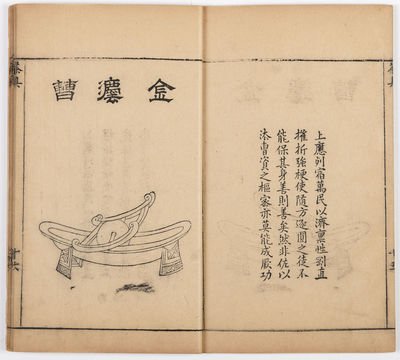 上應列宿萬民以濟稟性剛直
摧折強梗使隨方逐圓之徒不
能保其身善則善矣然非佐以
法曹資之樞密亦莫能成厥功
金灋曹
茶具